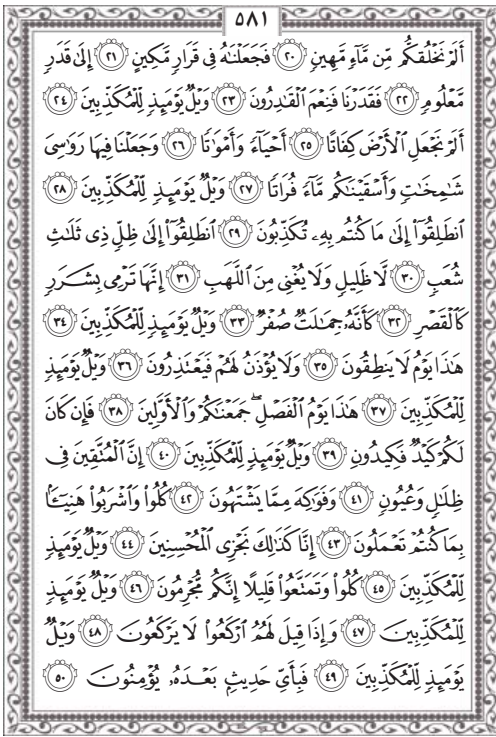 ٥٨١
أَلَمْ نَخْلُقكُّم مِّن مَّآءٍ مَّهِينٍ ٢٠ فَجَعَلْنَٰهُ فِى قَرَارٍ مَّكِينٍ ٢١ إِلَىٰ قَدَرٍ
مَّعْلُومٍ ٢٢ فَقَدَرْنَا فَنِعْمَ ٱلْقَٰدِرُونَ ٢٣ وَيْلٌ يَوْمَئِذٍ لِّلْمُكَذِّبِينَ ٢٤
أَلَمْ نَجْعَلِ ٱلْأَرْضَ كِفَاتًا ٢٥ أَحْيَآءً وَأَمْوَٰتًا ٢٦ وَجَعَلْنَا فِيهَا رَوَٰسِىَ
شَٰمِخَٰتٍ وَأَسْقَيْنَٰكُم مَّآءً فُرَاتًا ٢٧ وَيْلٌ يَوْمَئِذٍ لِّلْمُكَذِّبِينَ ٢٨
ٱنطَلِقُوٓا۟ إِلَىٰ مَا كُنتُم بِهِۦ تُكَذِّبُونَ ٢٩ ٱنطَلِقُوٓا۟ إِلَىٰ ظِلٍّ ذِى ثَلَٰثِ
شُعَبٍ ٣٠ لَّا ظَلِيلٍ وَلَا يُغْنِى مِنَ ٱللَّهَبِ ٣١ إِنَّهَا تَرْمِى بِشَرَرٍ
كَٱلْقَصْرِ ٣٢ كَأَنَّهُۥ جِمَٰلَتٌ صُفْرٌ ٣٣ وَيْلٌ يَوْمَئِذٍ لِّلْمُكَذِّبِينَ ٣٤
هَٰذَا يَوْمُ لَا يَنطِقُونَ ٣٥ وَلَا يُؤْذَنُ لَهُمْ فَيَعْتَذِرُونَ ٣٦ وَيْلٌ يَوْمَئِذٍ
لِّلْمُكَذِّبِينَ ٣٧ هَٰذَا يَوْمُ ٱلْفَصْلِ ۖ جَمَعْنَٰكُمْ وَٱلْأَوَّلِينَ ٣٨ فَإِن كَانَ
لَكُمْ كَيْدٌ فَكِيدُونِ ٣٩ وَيْلٌ يَوْمَئِذٍ لِّلْمُكَذِّبِينَ ٤٠ إِنَّ ٱلْمُتَّقِينَ فِى
ظِلَٰلٍ وَعُيُونٍ ٤١ وَفَوَٰكِهَ مِمَّا يَشْتَهُونَ ٤٢ كُلُوا۟ وَٱشْرَبُوا۟ هَنِيٓـًٔۢا
بِمَا كُنتُمْ تَعْمَلُونَ ٤٣ إِنَّا كَذَٰلِكَ نَجْزِى ٱلْمُحْسِنِينَ ٤٤ وَيْلٌ يَوْمَئِذٍ
لِّلْمُكَذِّبِينَ ٤٥ كُلُوا۟ وَتَمَتَّعُوا۟ قَلِيلًا إِنَّكُم مُّجْرِمُونَ ٤٦ وَيْلٌ يَوْمَئِذٍ
لِّلْمُكَذِّبِينَ ٤٧ وَإِذَا قِيلَ لَهُمُ ٱرْكَعُوا۟ لَا يَرْكَعُونَ ٤٨ وَيْلٌ
يَوْمَئِذٍ لِّلْمُكَذِّبِينَ ٤٩ فَبِأَىِّ حَدِيثٍۭ بَعْدَهُۥ يُؤْمِنُونَ ٥٠